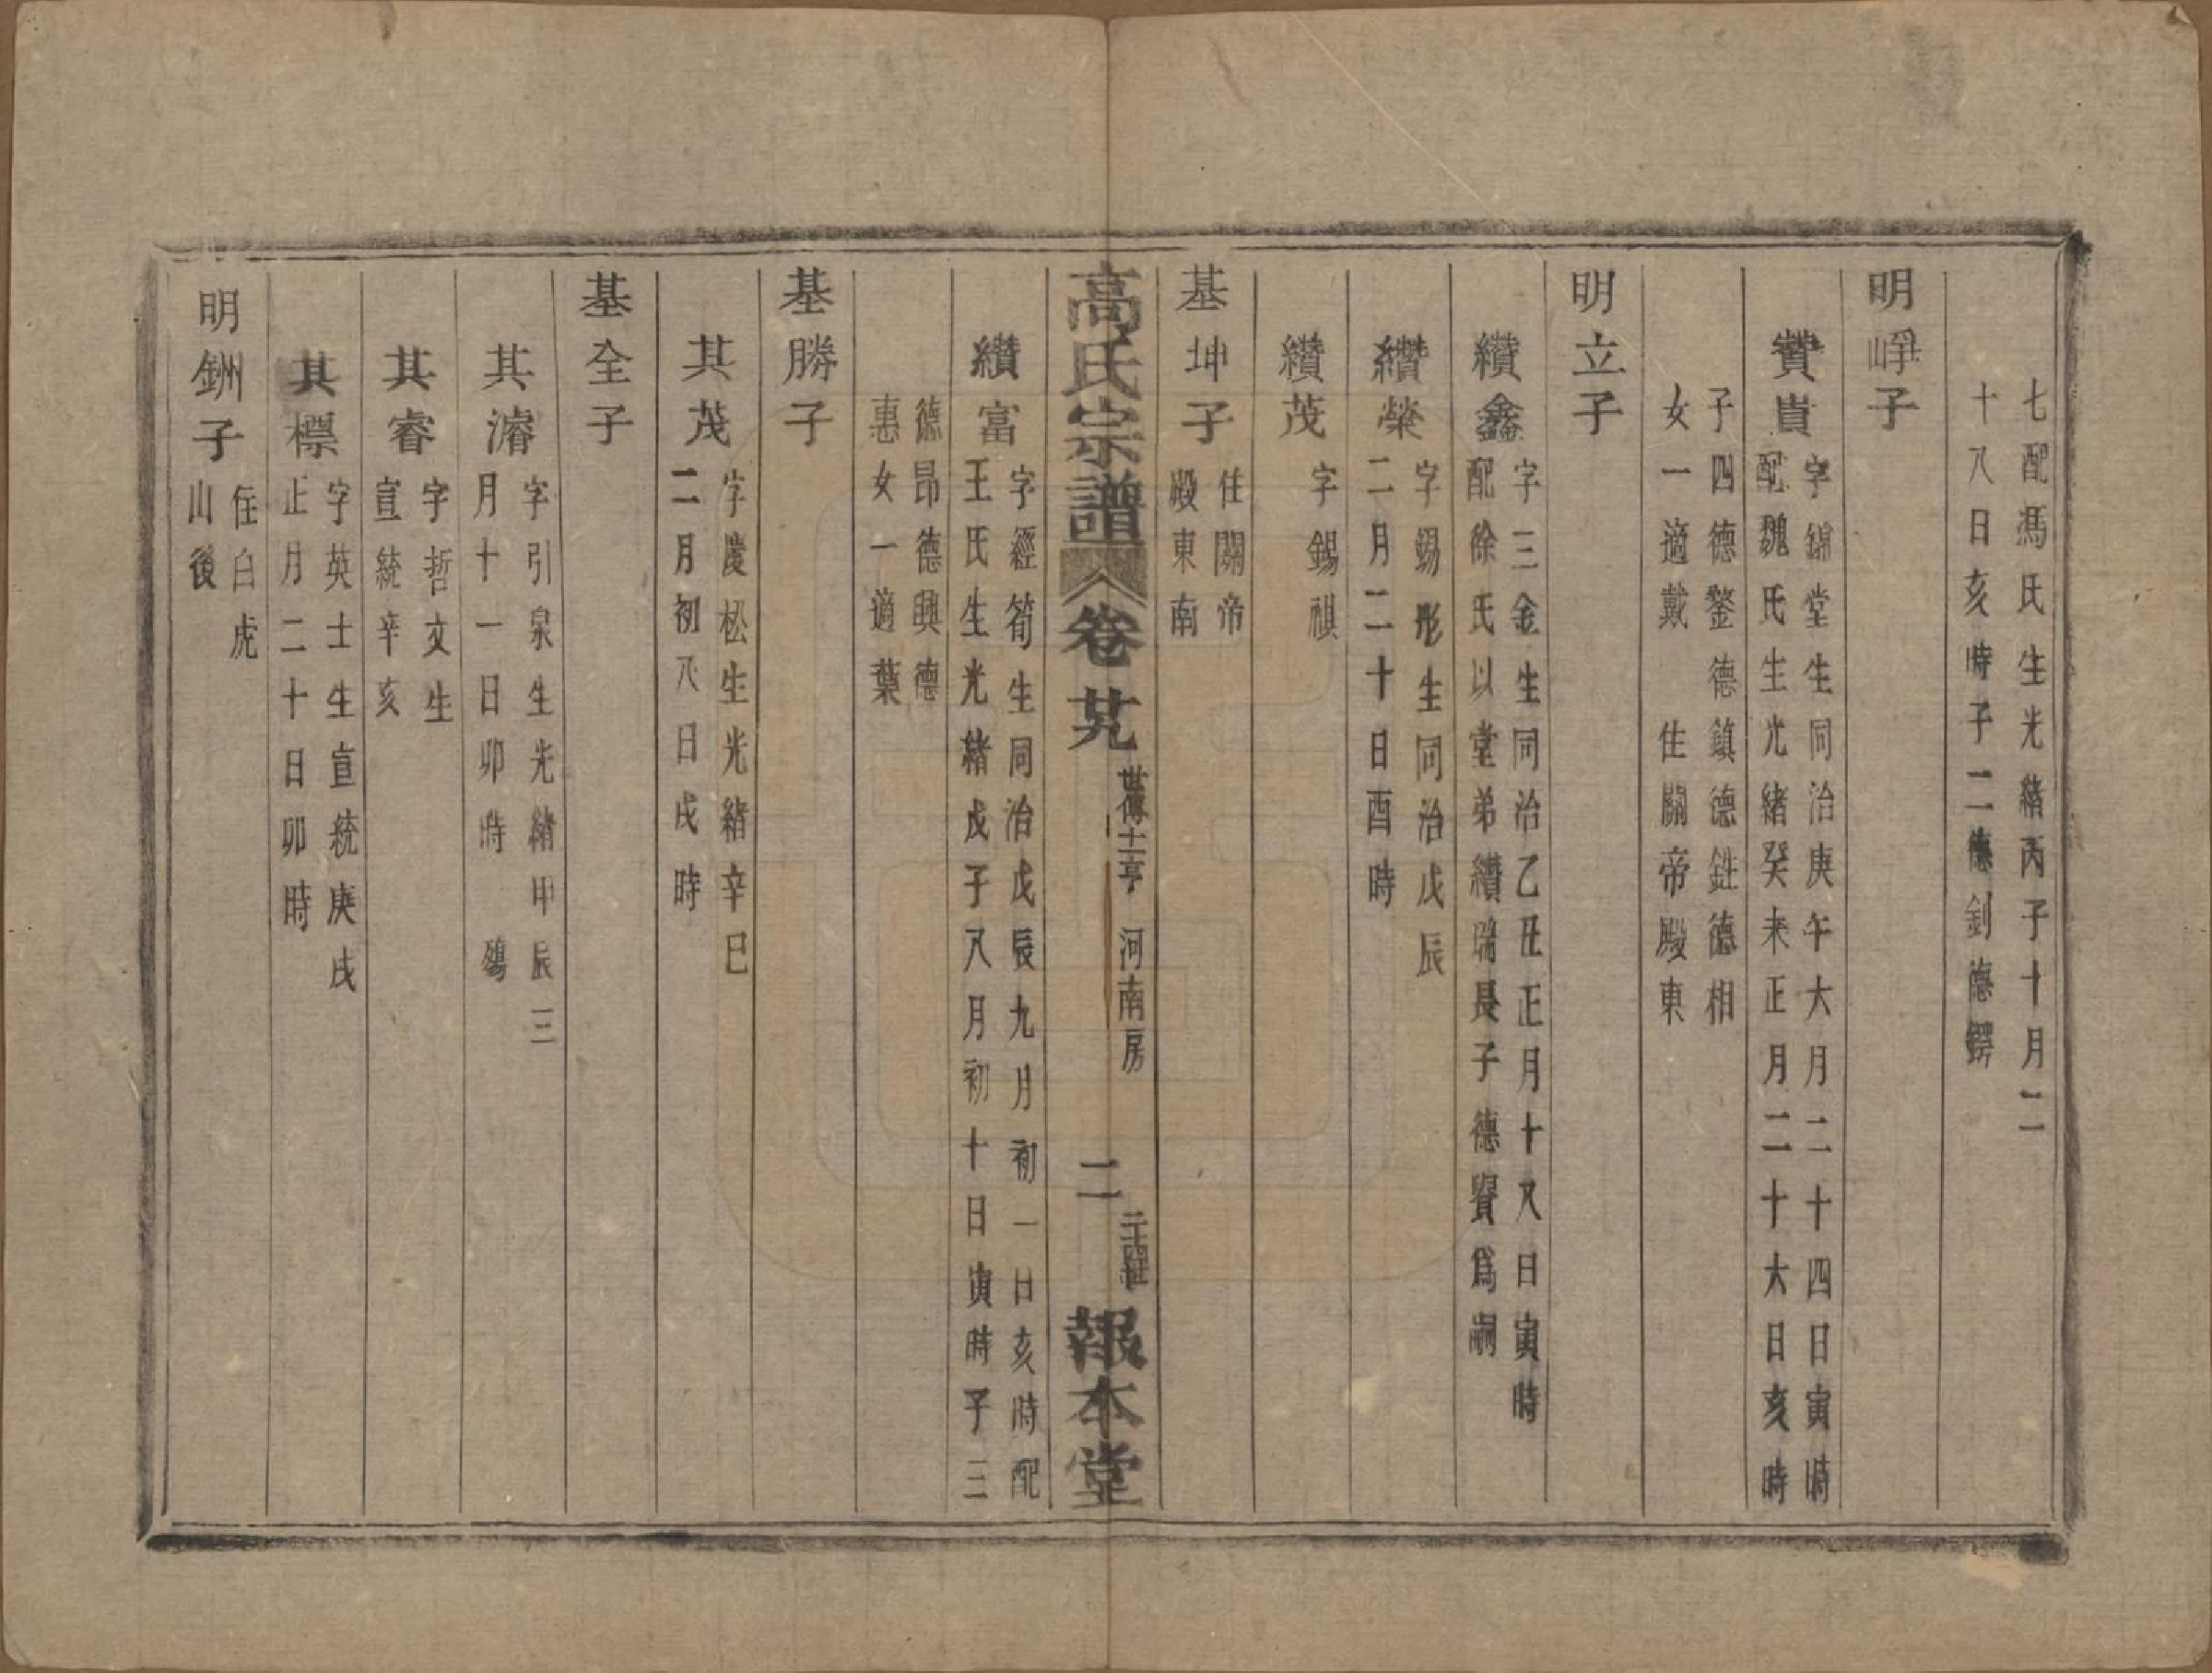 七配馮氏生光緒丙子十月二
十八日亥時子二德釗德鍔
明崢子
贊貴
字錦堂生同治庚午六月二十四日寅時
配魏氏生光緒癸未正月二十六日亥時
子四德鎣德鎮德鉎德相
女一適戴 住關帝殿東
明立子
纘鑫
字三金生同治乙丑正月十八日寅時
配徐氏以堂弟纘瑞長子德賢爲嗣
纘榮
字錫彤生同治戊辰
二月二十日酉時
纘茂
字錫祺
基坤子
住關帝
殿東南
高氏宗譜 卷廿九 世傳 十一亨 河南房 二 報本堂
纘富
字經筍生同治戊辰九月初一日亥時配
王氏生光緒戊子八月初十日寅時子三
德昂德興德
惠女一適葉
基勝子
其茂
字慶松生光緒辛巳
二月初八日戌時
基全子
其濬
字引泉生光緒甲辰三
月十一日卯時 殤
其睿
字哲文生
宣統辛亥
其標
字英士生宣統庚戌
正月二十日卯時
明鉶子
住白虎
山後